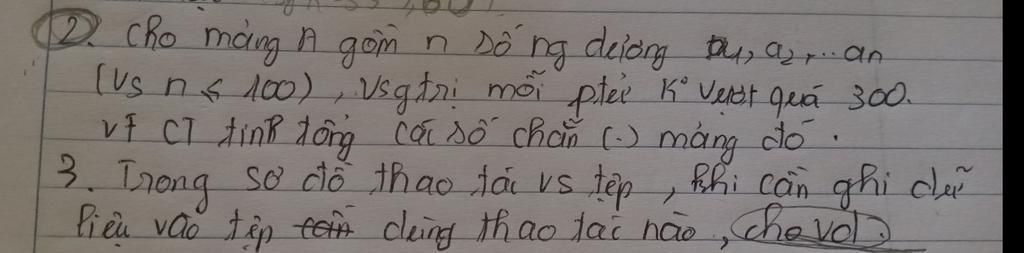 2. Cho mảng A gồm n số ng dương a1, a2, ... an
(vs n ≤ 100), vs gtrị mỗi ptử k° vượt quá 300.
vt CT tính tổng các số chẵn (.) mảng đó.
3. Trong sơ đồ thao tác vs tệp, khi cần ghi dữ
liệu vào tệp dùng thao tác nào, cho vd.